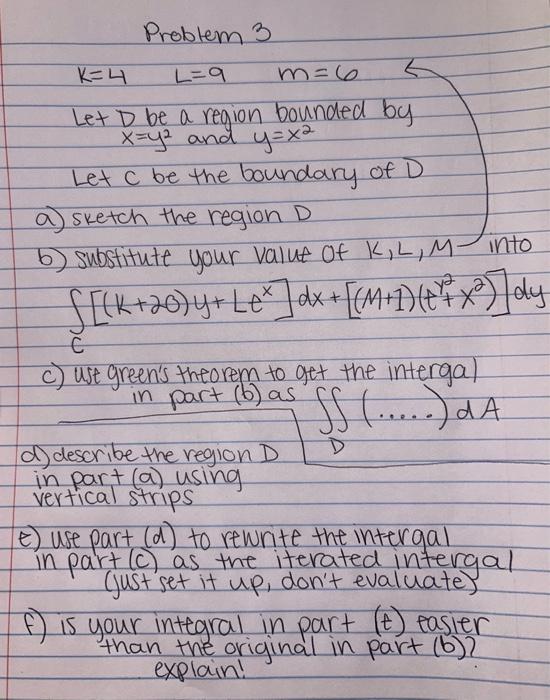 Problem 3
K=4 L=9 m=6
Let D be a region bounded by
x=y² and y=x²
Let C be the boundary of D
a) sketch the region D
b) substitute your value of K, L, M into
∫ [(K+20)y + Le^x] dx + [(M+1)(e^y² + x²)] dy
C
c) use green's theorem to get the intergal
in part (b) as ∬ (.....) dA
D
d) describe the region D
in part (a) using
vertical strips
e) use part (d) to rewrite the intergal
in part (c) as the iterated intergal
(just set it up, don't evaluate)
f) is your integral in part (e) easier
than the original in part (b)?
explain!